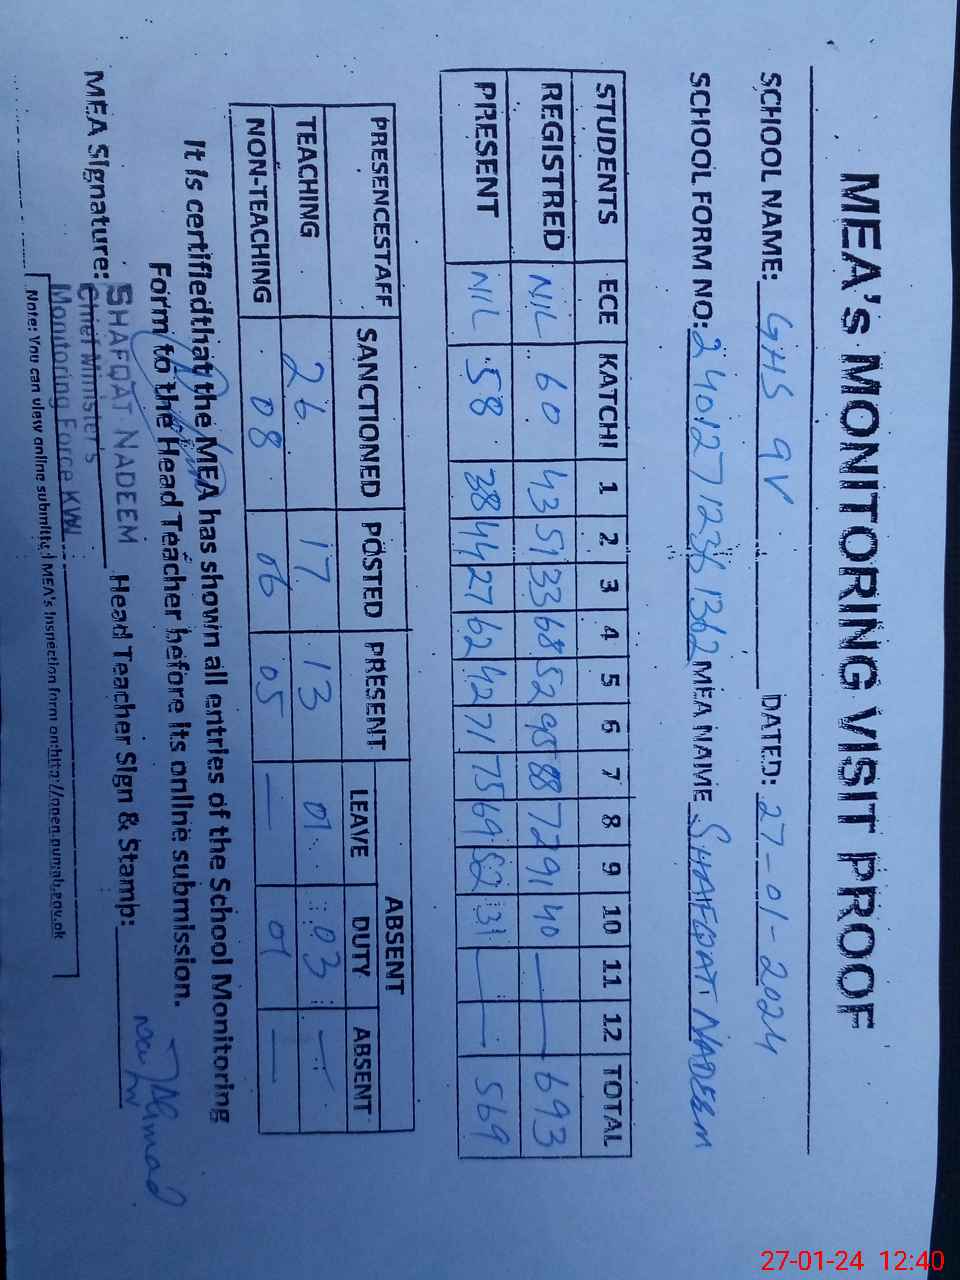 MEA's MONITORING VISIT PROOF
SCHOOL NAME: GHS 9V DATED: 27-01-2024
SCHOOL FORM NO: MEA NAME SHAFQAT NADEEM
STUDENTS ECE KATCHI 1 2 3 4 5 6 7 8 9 10 11 12 TOTAL
REGISTRED NIL 60 43 51 33 68 52 95 88 72 91 40 — — 693
PRESENT NIL 58 38 44 27 62 42 71 75 69 52 31 — — 569
PRESENCESTAFF SANCTIONED POSTED PRESENT ABSENT
LEAVE DUTY ABSENT
TEACHING 26 17 13 01 03 —
NON-TEACHING 08 06 05 — 01 —
It is certifiedthat the MEA has shown all entries of the School Monitoring
Form to the Head Teacher before its online submission.
MEA Signature: Head Teacher Sign & Stamp:
SHAFQAT NADEEM
Chief Minister's
Monitoring Force KWL
Note: You can view online submitted MEA's inspection form on:http://open.punjab.gov.pk
27-01-24 12:40